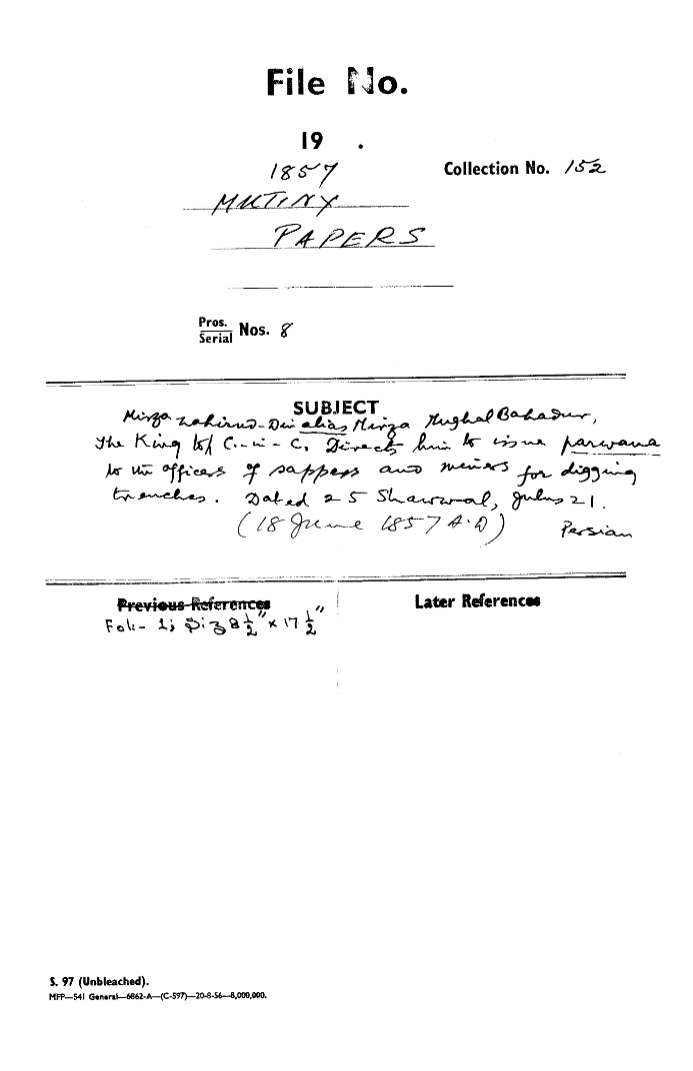 File No.
19 .
1857
Collection No. 152
MUTINY
PAPERS
Pros.
Serial Nos. 8
SUBJECT
Mirza Zahirud-Din alias Mirza Mughal Bahadur,
The King to C.-in-C. Directs him to issue parwana
to the officers of sappers and miners for digging
trenches. Dated 25 Shawwal, Julus 21.
(18 June 1857 A.D)
Persian
Previous References
Later References
Fol:- 1; Siz 8 1/2" x 17 1/2"
S. 97 (Unbleached).
MFP—541 General—6862-A—(C-597)—20-8-56—8,000,000.